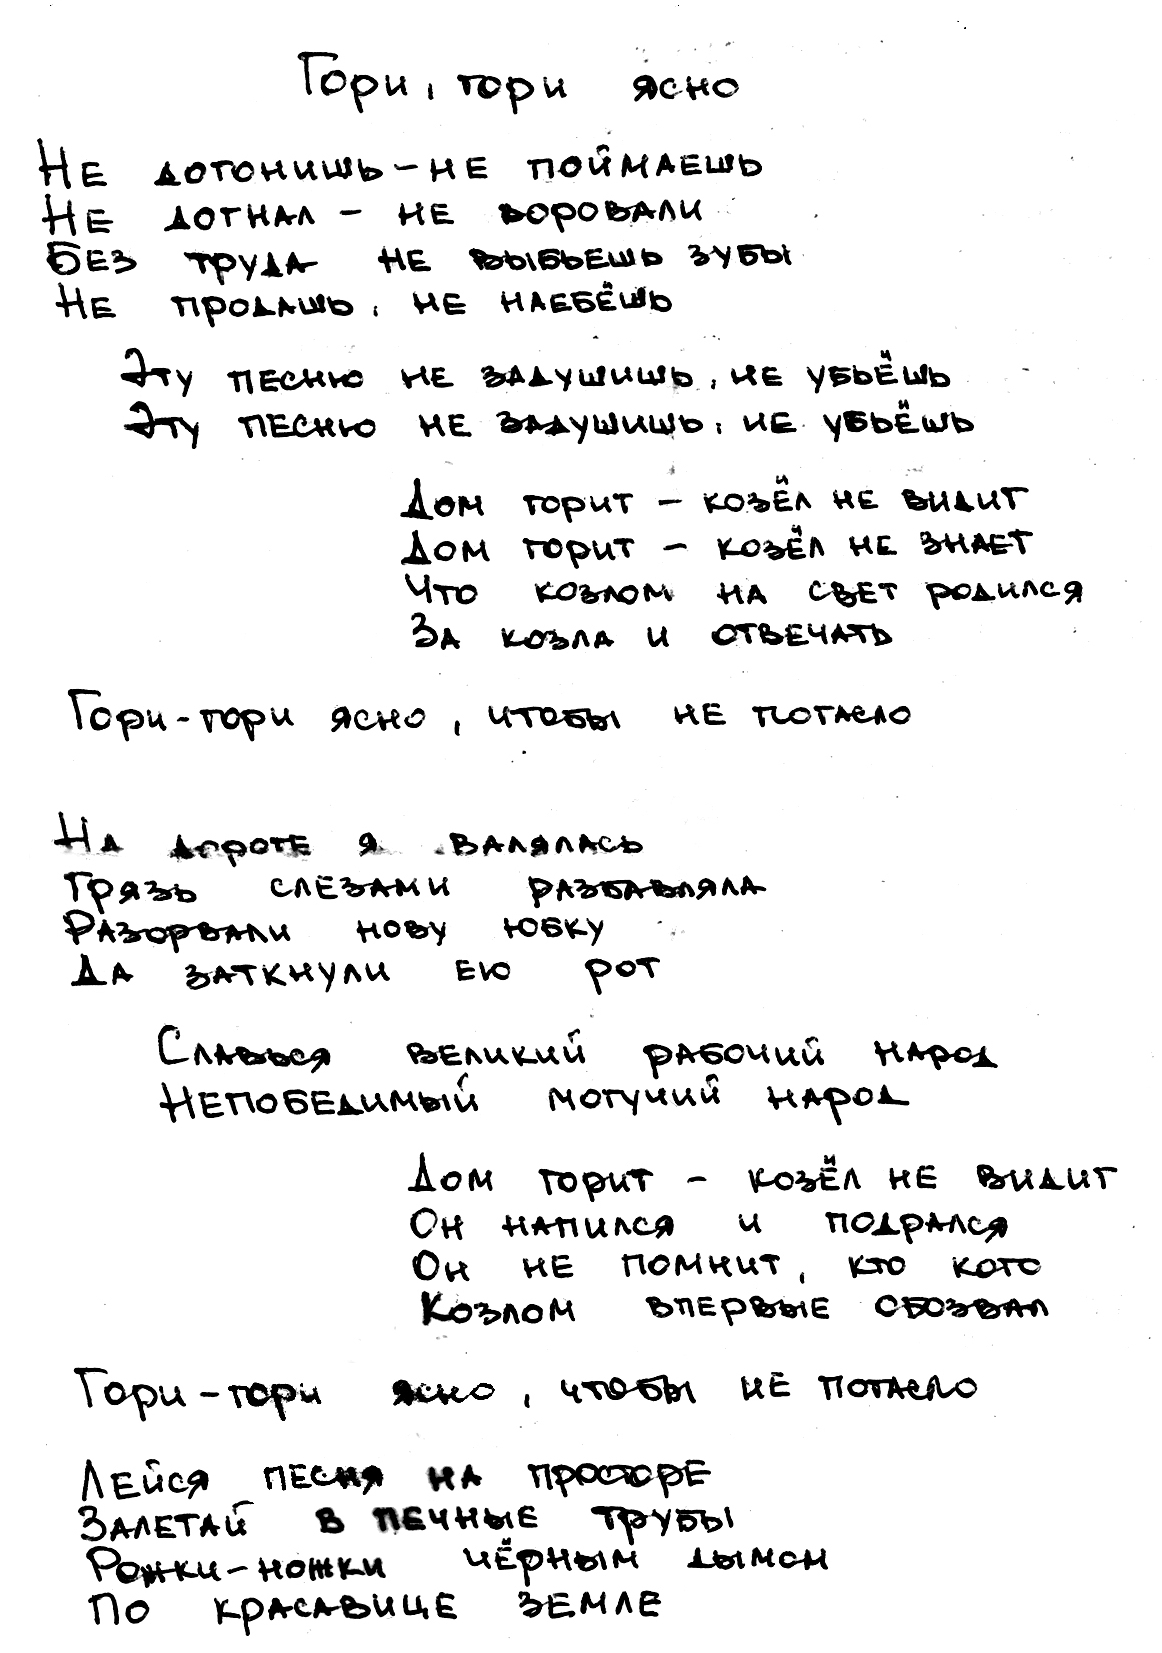 Гори, гори ясно
Не догонишь - не поймаешь
Не догнал - не воровали
Без труда не выбьешь зубы
Не продашь, не наебёшь
Эту песню не задушишь, не убьёшь
Эту песню не задушишь, не убьёшь
Дом горит - козёл не видит
Дом горит - козёл не знает
Что козлом на свет родился
За козла и отвечать
Гори-гори ясно, чтобы не погасло
На дороге я валялась
Грязь слезами разбавляла
Разорвали нову юбку
Да заткнули ею рот
Славься великий рабочий народ
Непобедимый могучий народ
Дом горит - козёл не видит
Он напился и подрался
Он не помнит, кто кого
Козлом впервые обозвал
Гори-гори ясно, чтобы не погасло
Лейся песня на просторе
Залетай в печные трубы
Рожки-ножки чёрным дымом
По красавице земле